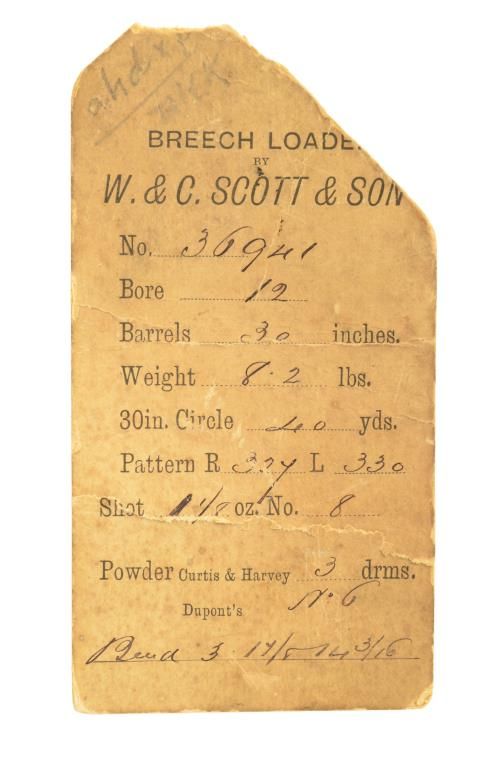 BREECH LOADE
BY
W. & C. SCOTT & SON
No. 36941
Bore 12
Barrels 30 inches.
Weight 8.2 lbs.
30in. Circle 40 yds.
Pattern R 327 L 330
Shot 1 1/8 oz. No. 8
Powder Curtis & Harvey 3 drms.
Dupont's No 6
Bend 3 14 3/16